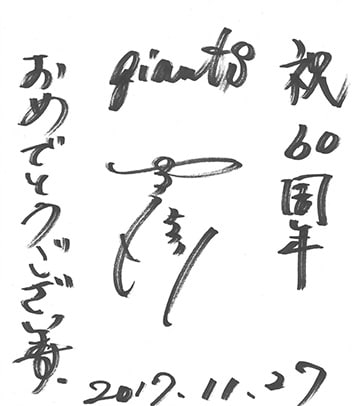 祝60周年
giants
おめでとうございます.
2017.11.27